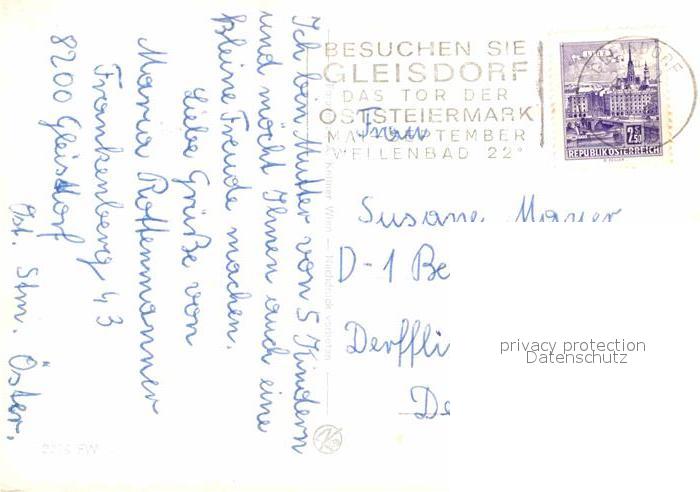 Ich bin Mutter von 5 Kindern
und möcht Ihnen auch eine
kleine Freude machen.
Liebe Grüße von
Maria Rottenmanner
Frankenberg 43
8200 Gleisdorf
Ost. Stm. Öster.
BESUCHEN SIE
GLEISDORF
DAS TOR DER
OSTSTEIERMARK
MAI SEPTEMBER
WELLENBAD 22°
GLEISDORF
WIEN
2.50
REPUBLIK ÖSTERREICH
Frau
Susane Maurer
D-1 Be
Derffli
De
privacy protection
Datenschutz
Wien — Nachdruck verboten